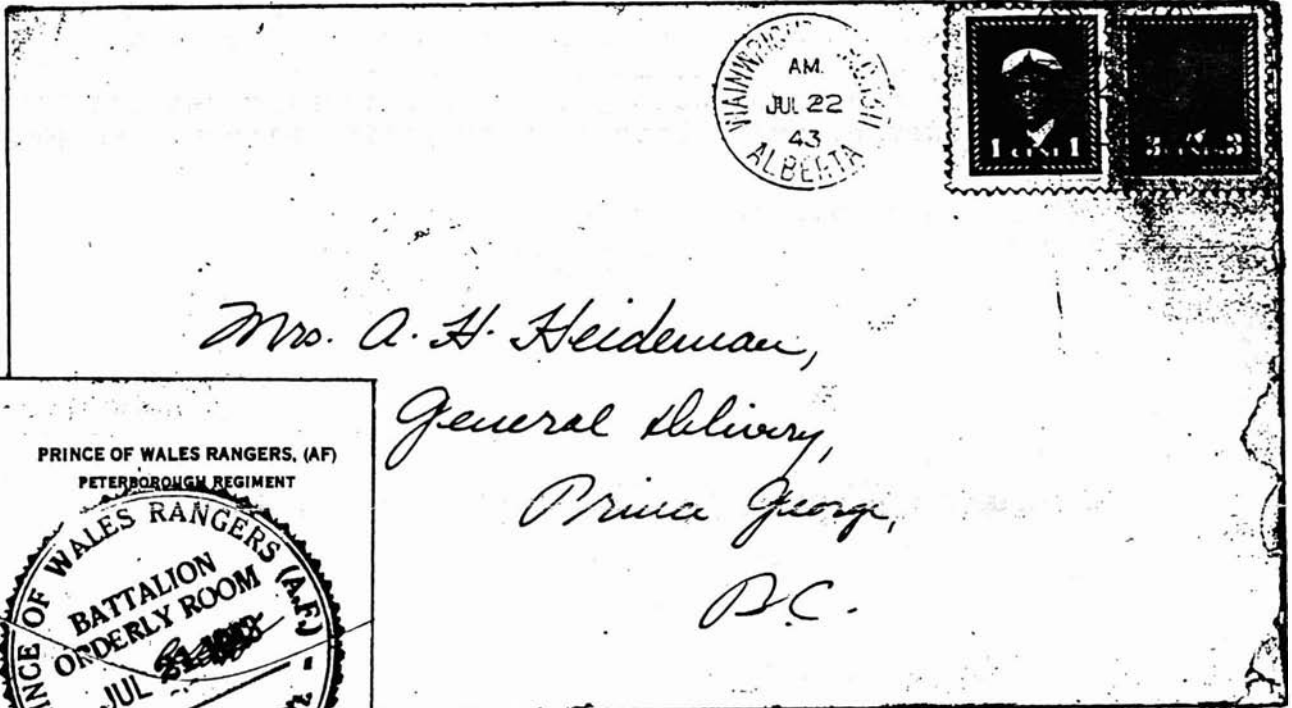 AM.
JUL 22
43
ALBERTA
1 1
3 3
Mrs. A. H. Heideman,
General Delivery,
Prince George,
B.C.
PRINCE OF WALES RANGERS, (AF)
PETERBOROUGH REGIMENT
INCE OF WALES RANGERS (A.F.) -
BATTALION
ORDERLY ROOM
JUL